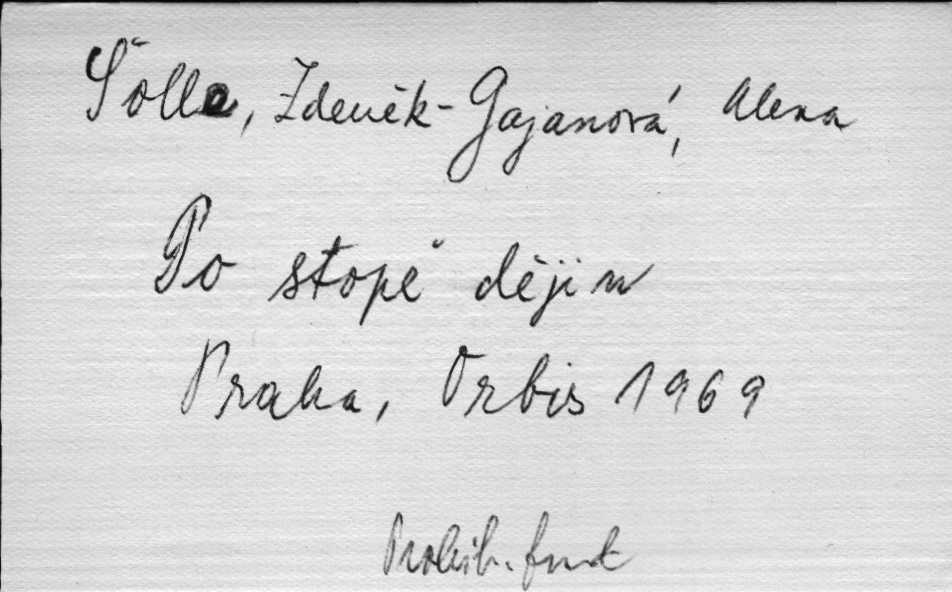 Šolle, Zdeněk - Gajanová, Alena
Po stopě dějin
Praha, Orbis 1969
Prohib. fond